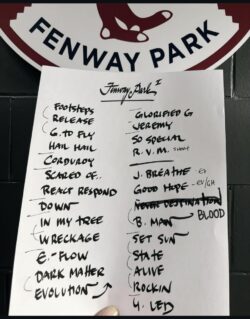 FENWAY PARK
Fenway Park I
FOOTSTEPS
RELEASE
G. TO FLY
HAIL HAIL
CORDUROY
SCARED OF..
REACT RESPOND
DOWN
IN MY TREE
WRECKAGE
E.-FLOW
DARK MATTER
EVOLUTION
GLORIFIED G
JEREMY
SO SPECIAL
R. V. M. SHORT
J. BREATHE EV
GOOD HOPE - EV/GH
NEVER DESTINATION
B. MAN BLOOD
SET SUN
STATE
ALIVE
ROCKIN
Y. LED